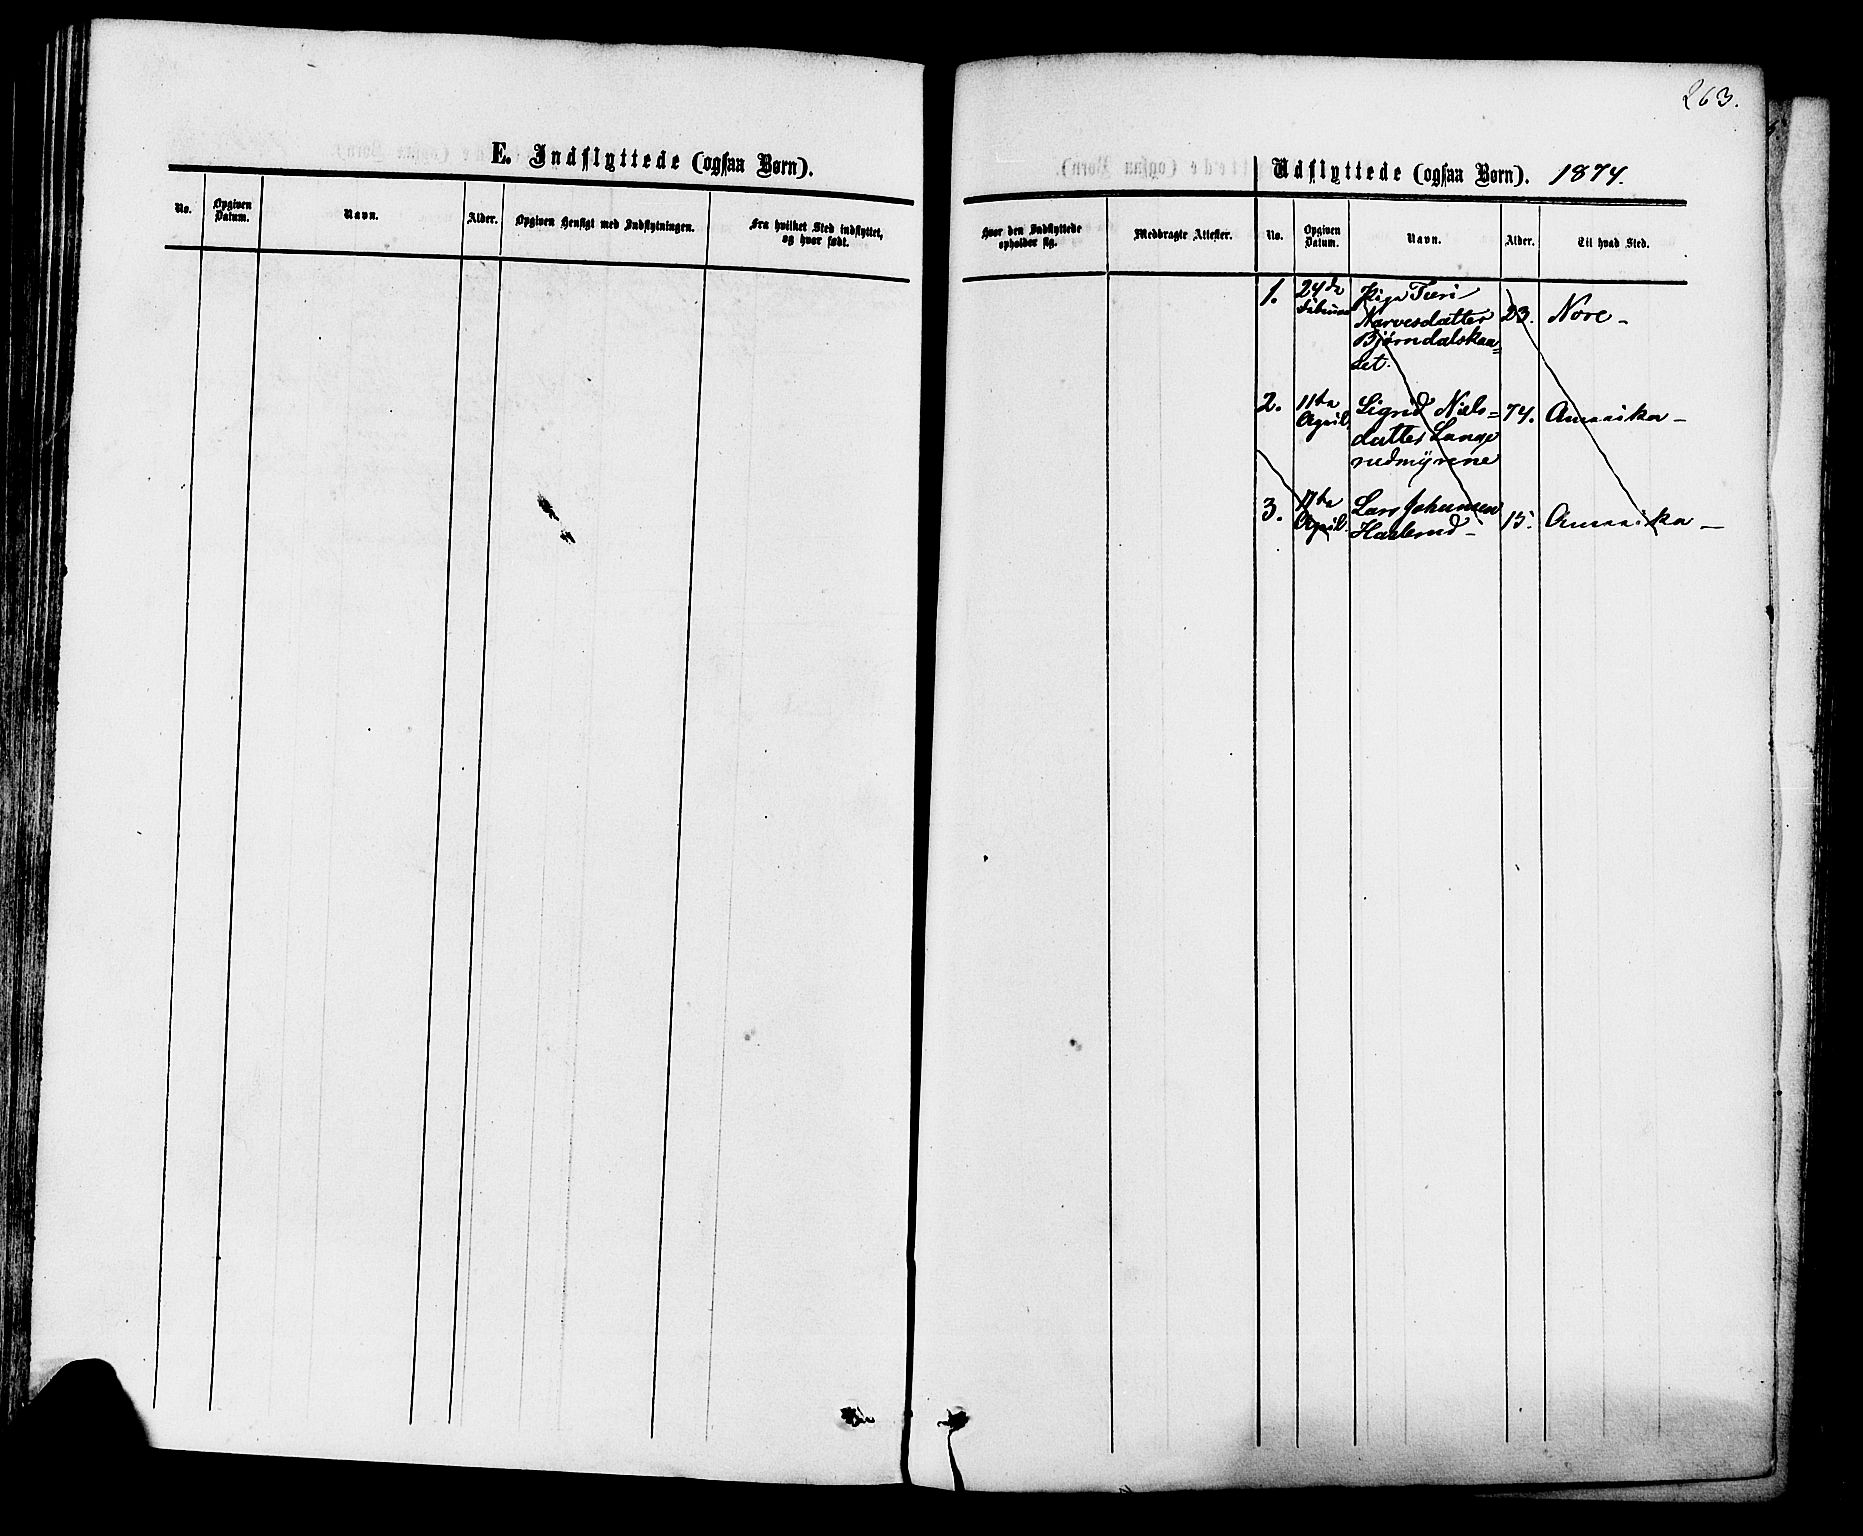 263.
E. Indflyttede (ogsaa Børn).
No.
Opgiven Datum.
Navn.
Alder.
Opgiven Hensigt med Indflytningen.
Fra hvilket Sted indflyttet, og hvor født.
Udflyttede (ogsaa Børn). 1874.
Hvor den Indflyttede opholder sig.
Medbragte Attester.
No.
Opgiven Datum.
Navn.
Alder.
Til hvad Sted.
1. 24de Pige Turi 23. Nore –
Februar Narvesdatter
Bjørndalskaa=
det.
2. 11te Sigrid Niels= 74. Amerika –
April datter Lange
rudmyrene
3. 17te Lars Johansen 15. Amerika –
April Haslerud –